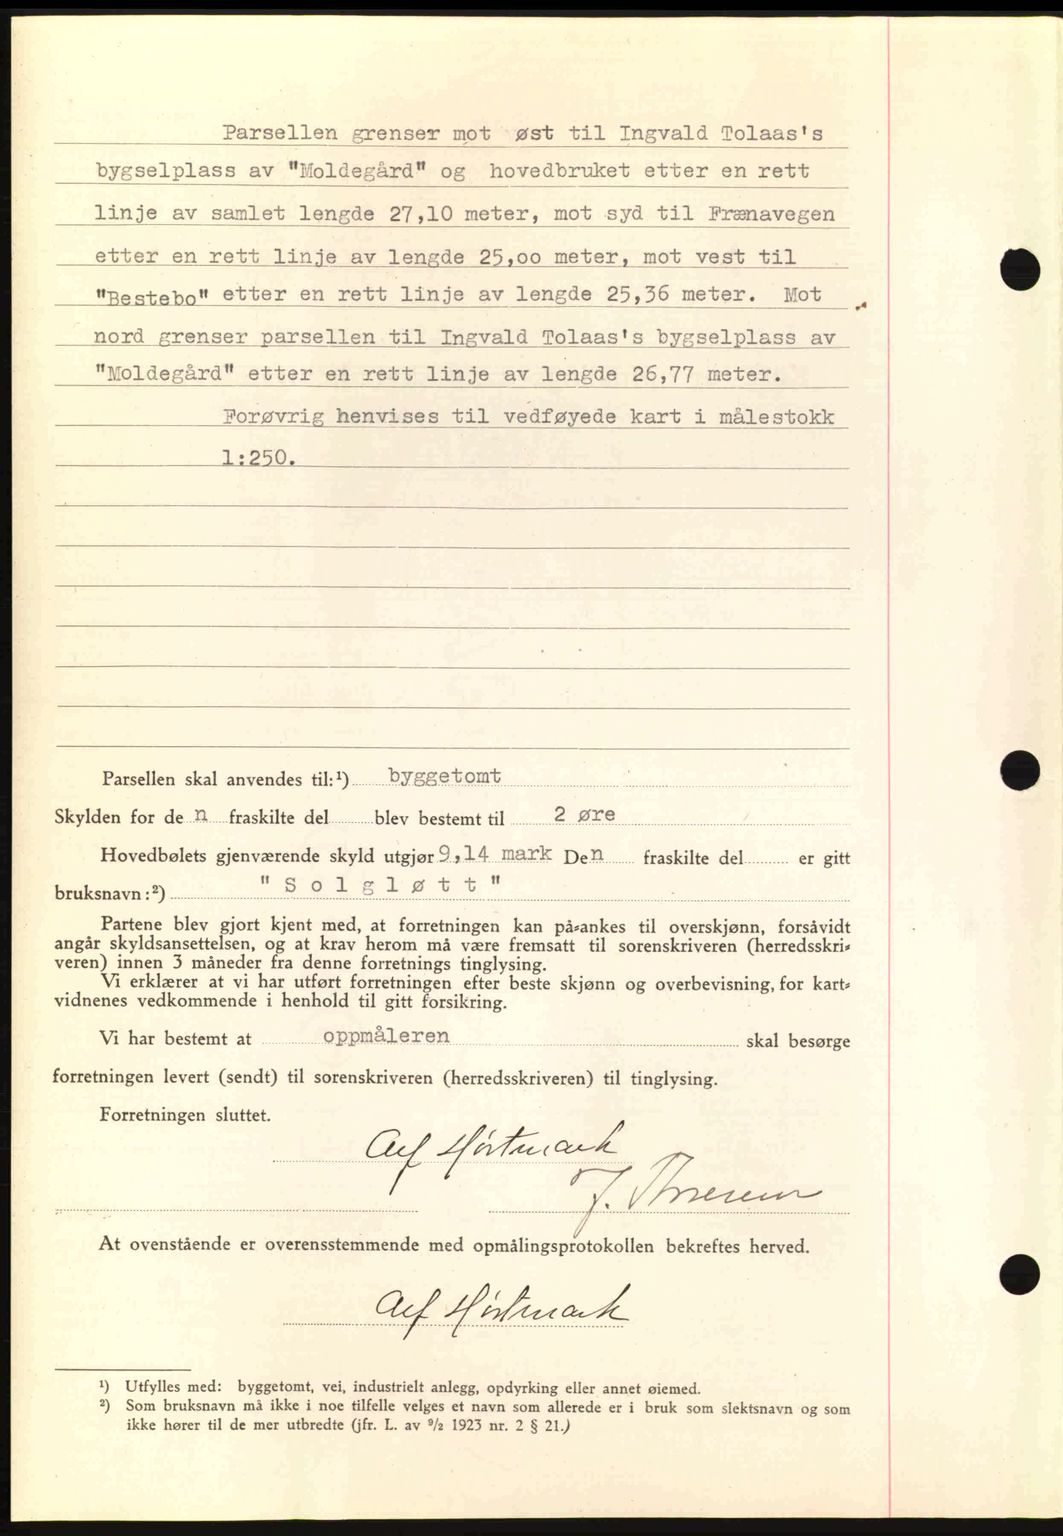 Parsellen grenser mot øst til Ingvald Tolaas's
bygselplass av "Moldegård" og hovedbruket etter en rett
linje av samlet lengde 27,10 meter, mot syd til Frænavegen
etter en rett linje av lengde 25,oo meter, mot vest til
"Bestebo" etter en rett linje av lengde 25,36 meter. Mot
nord grenser parsellen til Ingvald Tolaas's bygselplass av
"Moldegård" etter en rett linje av lengde 26,77 meter.
Forøvrig henvises til vedføyede kart i målestokk
1:250.
Parsellen skal anvendes til:¹) byggetomt
Skylden for de n fraskilte del blev bestemt til 2 øre
Hovedbølets gjenværende skyld utgjør 9,14 mark Den fraskilte del er gitt
bruksnavn:²) "Solgløtt"
Partene blev gjort kjent med, at forretningen kan på=ankes til overskjønn, forsåvidt
angår skyldsansettelsen, og at krav herom må være fremsatt til sorenskriveren (herredsskri=
veren) innen 3 måneder fra denne forretnings tinglysing.
Vi erklærer at vi har utført forretningen efter beste skjønn og overbevisning, for kart=
vidnenes vedkommende i henhold til gitt forsikring.
Vi har bestemt at oppmåleren skal besørge
forretningen levert (sendt) til sorenskriveren (herredsskriveren) til tinglysing.
Forretningen sluttet.
Alf Hörtmark
J.
At ovenstående er overensstemmende med opmålingsprotokollen bekreftes herved.
Alf Hörtmark
¹) Utfylles med: byggetomt, vei, industrielt anlegg, opdyrking eller annet øiemed.
²) Som bruksnavn må ikke i noe tilfelle velges et navn som allerede er i bruk som slektsnavn og som
ikke hører til de mer utbredte (jfr. L. av 9/2 1923 nr. 2 § 21.)